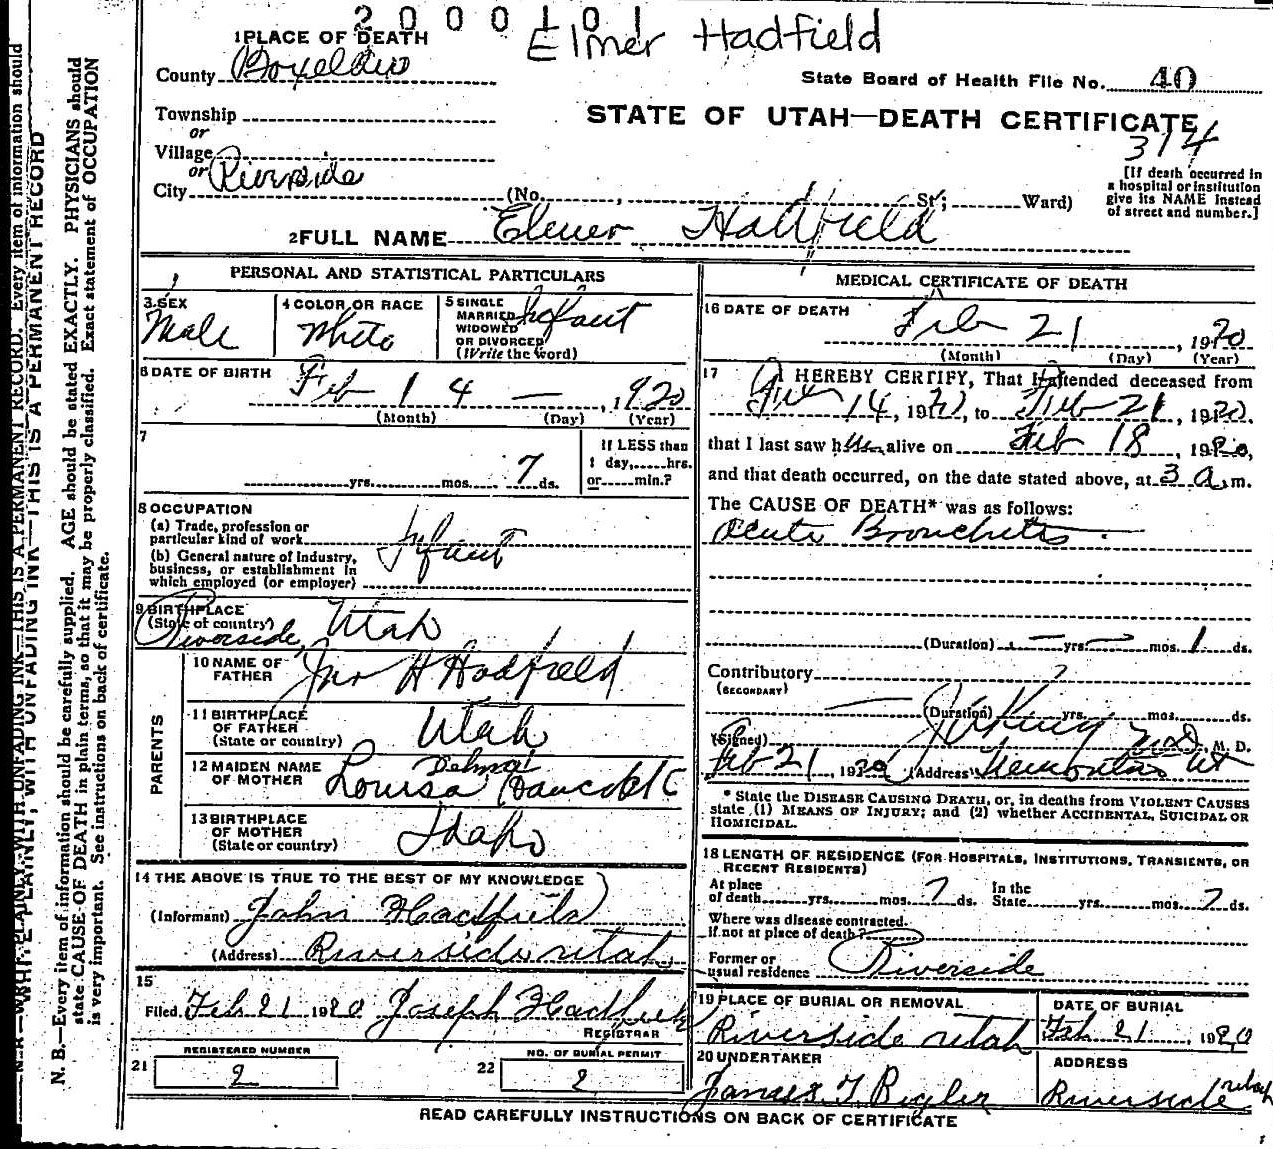 2000101
Elmer Hadfield
1 PLACE OF DEATH
County Boxelder
State Board of Health File No. 40
Township
or
Village
or
City Riverside
STATE OF UTAH—DEATH CERTIFICATE
314
[If death occurred in
a hospital or institution
give its NAME instead
of street and number.]
(No. , St.; Ward)
2 FULL NAME Elmer Hadfield
PERSONAL AND STATISTICAL PARTICULARS
3 SEX
Male
4 COLOR OR RACE
White
5 SINGLE
MARRIED
WIDOWED
OR DIVORCED
(Write the word)
Infant
6 DATE OF BIRTH
Feb 14 — , 1920
(Month) (Day) (Year)
7
yrs. mos. 7 ds.
If LESS than
1 day, hrs.
or min.?
8 OCCUPATION
(a) Trade, profession or
particular kind of work
(b) General nature of Industry,
business, or establishment in
which employed (or employer)
Infant
9 BIRTHPLACE
(State of country)
Riverside, Utah
PARENTS
10 NAME OF
FATHER
Jno H Hadfield
11 BIRTHPLACE
OF FATHER
(State or country)
Utah
12 MAIDEN NAME
OF MOTHER
Louisa Delma Hancock
13 BIRTHPLACE
OF MOTHER
(State or country)
Idaho
14 THE ABOVE IS TRUE TO THE BEST OF MY KNOWLEDGE
(Informant) John Hadfield
(Address) Riverside utah
15
Filed Feb 21 1920 Joseph Hadfield
REGISTRAR
21 REGISTERED NUMBER
2
22 NO. OF BURIAL PERMIT
2
MEDICAL CERTIFICATE OF DEATH
16 DATE OF DEATH
Feb 21 , 1920
(Month) (Day) (Year)
17 I HEREBY CERTIFY, That I attended deceased from
Feb 14, 1920, to Feb 21, 1920.
that I last saw him alive on Feb 18, 1920,
and that death occurred, on the date stated above, at 3 a.m.
The CAUSE OF DEATH* was as follows:
Acute Bronchitis
(Duration) — yrs. — mos. 1 ds.
Contributory
(SECONDARY)
(Duration) yrs. mos. ds.
(Signed) M. D.
Feb 21, 1920 (Address)
* State the DISEASE CAUSING DEATH, or, in deaths from VIOLENT CAUSES
state (1) MEANS OF INJURY; and (2) whether ACCIDENTAL, SUICIDAL OR
HOMICIDAL.
18 LENGTH OF RESIDENCE (FOR HOSPITALS, INSTITUTIONS, TRANSIENTS, OR
RECENT RESIDENTS)
At place
of death yrs. mos. 7 ds.
In the
State yrs. mos. 7 ds.
Where was disease contracted.
If not at place of death?
Former or
usual residence Riverside
19 PLACE OF BURIAL OR REMOVAL
Riverside utah
DATE OF BURIAL
Feb 21, 1920
20 UNDERTAKER
James T. Bigler
ADDRESS
Riverside utah
READ CAREFULLY INSTRUCTIONS ON BACK OF CERTIFICATE
WRITE PLAINLY, WITH UNFADING INK—THIS IS A PERMANENT RECORD
N. B.—Every item of information should be carefully supplied. AGE should be stated EXACTLY. PHYSICIANS should
state CAUSE OF DEATH in plain terms, so that it may be properly classified. Exact statement of OCCUPATION
is very important. See instructions on back of certificate.